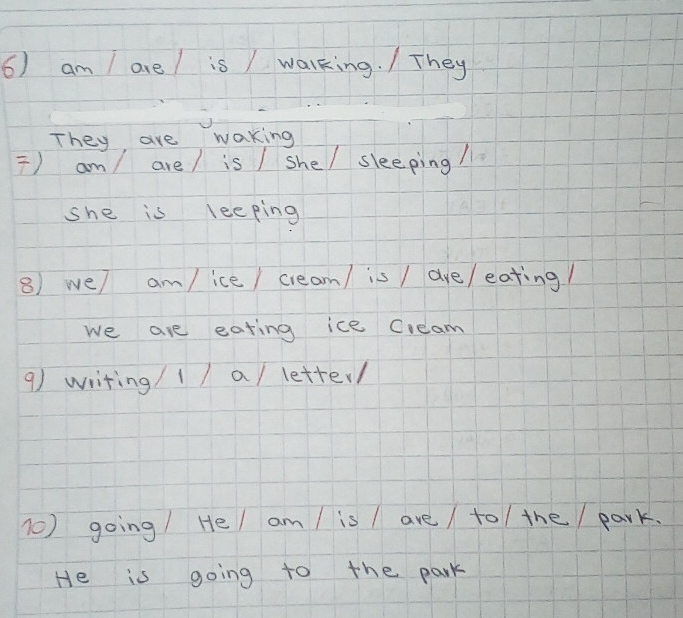 6) am / are / is / walking. / They
They are waking
7) am / are / is / she / sleeping /
she is leeping
8) we / am / ice / cream / is / are / eating /
we are eating ice cream
9) writing / I / a / letter /
10) going / He / am / is / are / to / the / park.
He is going to the park